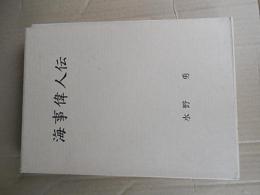 海事偉人伝
水野勇